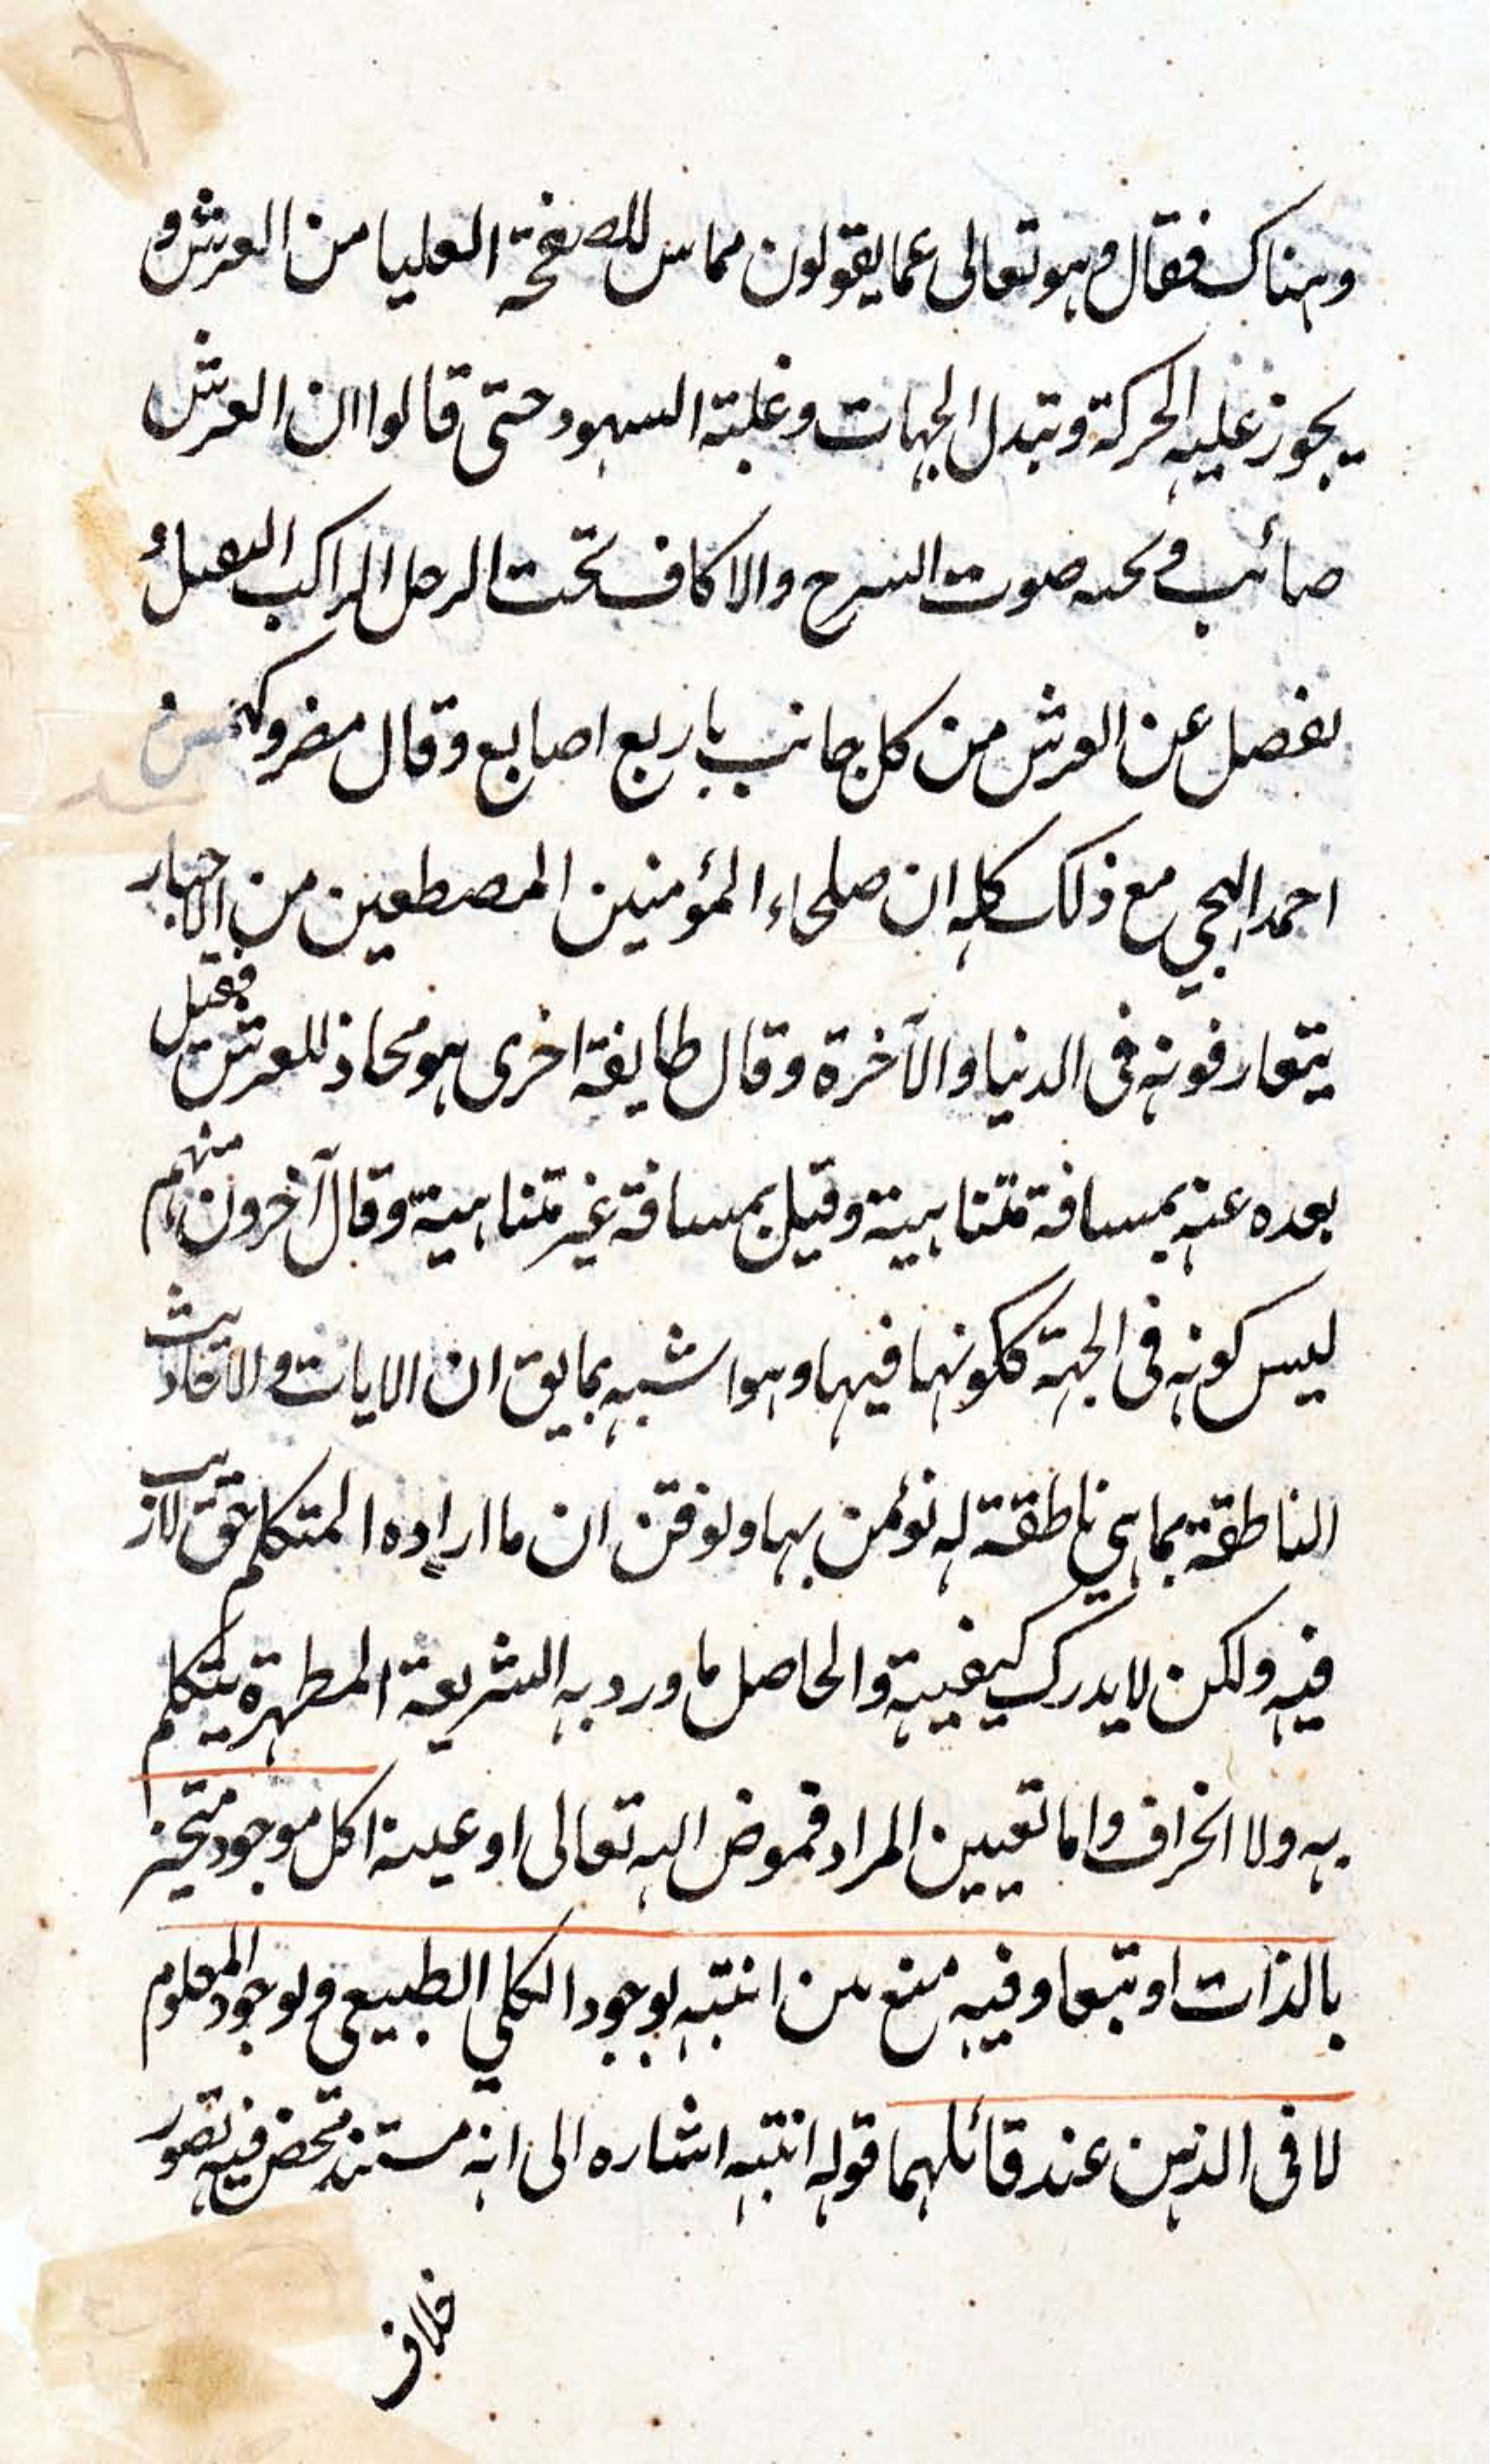 وهناك فقال وهو تعالى عما يقولون مماس للصفحة العليا من العرش و
يجوز عليه الحركة وتبدل الجهات وغلبته السهود حتى قالوا ان العرش
صائب وتحته صوت السرج والاكاف تحت الرحل الراكب الثقيل و
يفضل عن العرش من كل جانب باربع اصابع وقال مضر وكهمس
احمد الهجيمي مع ذلك كله ان صلحاء المؤمنين المصطعين من الاخبار
يتعارفونه في الدنيا والآخرة وقال طايفة اخرى هو محاذ للعرش فقيل
بعده عنه بمسافة متناهية وقيل بمسافة غير متناهية وقال آخرون منهم
ليس كونه في الجهة ككونها فيها وهو اشبه بما يق ان الايات والاحاديث
الناطقة بما هي ناطقة له نؤمن بها ونوقن ان ما اراده المتكلم حق لاريب
فيه ولكن لا يدرك كيفيته والحاصل ما ورد به الشريعة المطهرة يتكلم
به ولا انحراف واما تعيين المراد فمفوض اليه تعالى او عينه اكل موجود متحيز
بالذات او تبعا وفيه منع بين انتبه بوجود الكلي الطبيعي و لوجود المعلوم
لا في الذهن عند قائلهما قوله انتبه اشاره الى انه مستند محض فيه تصور
خلاف